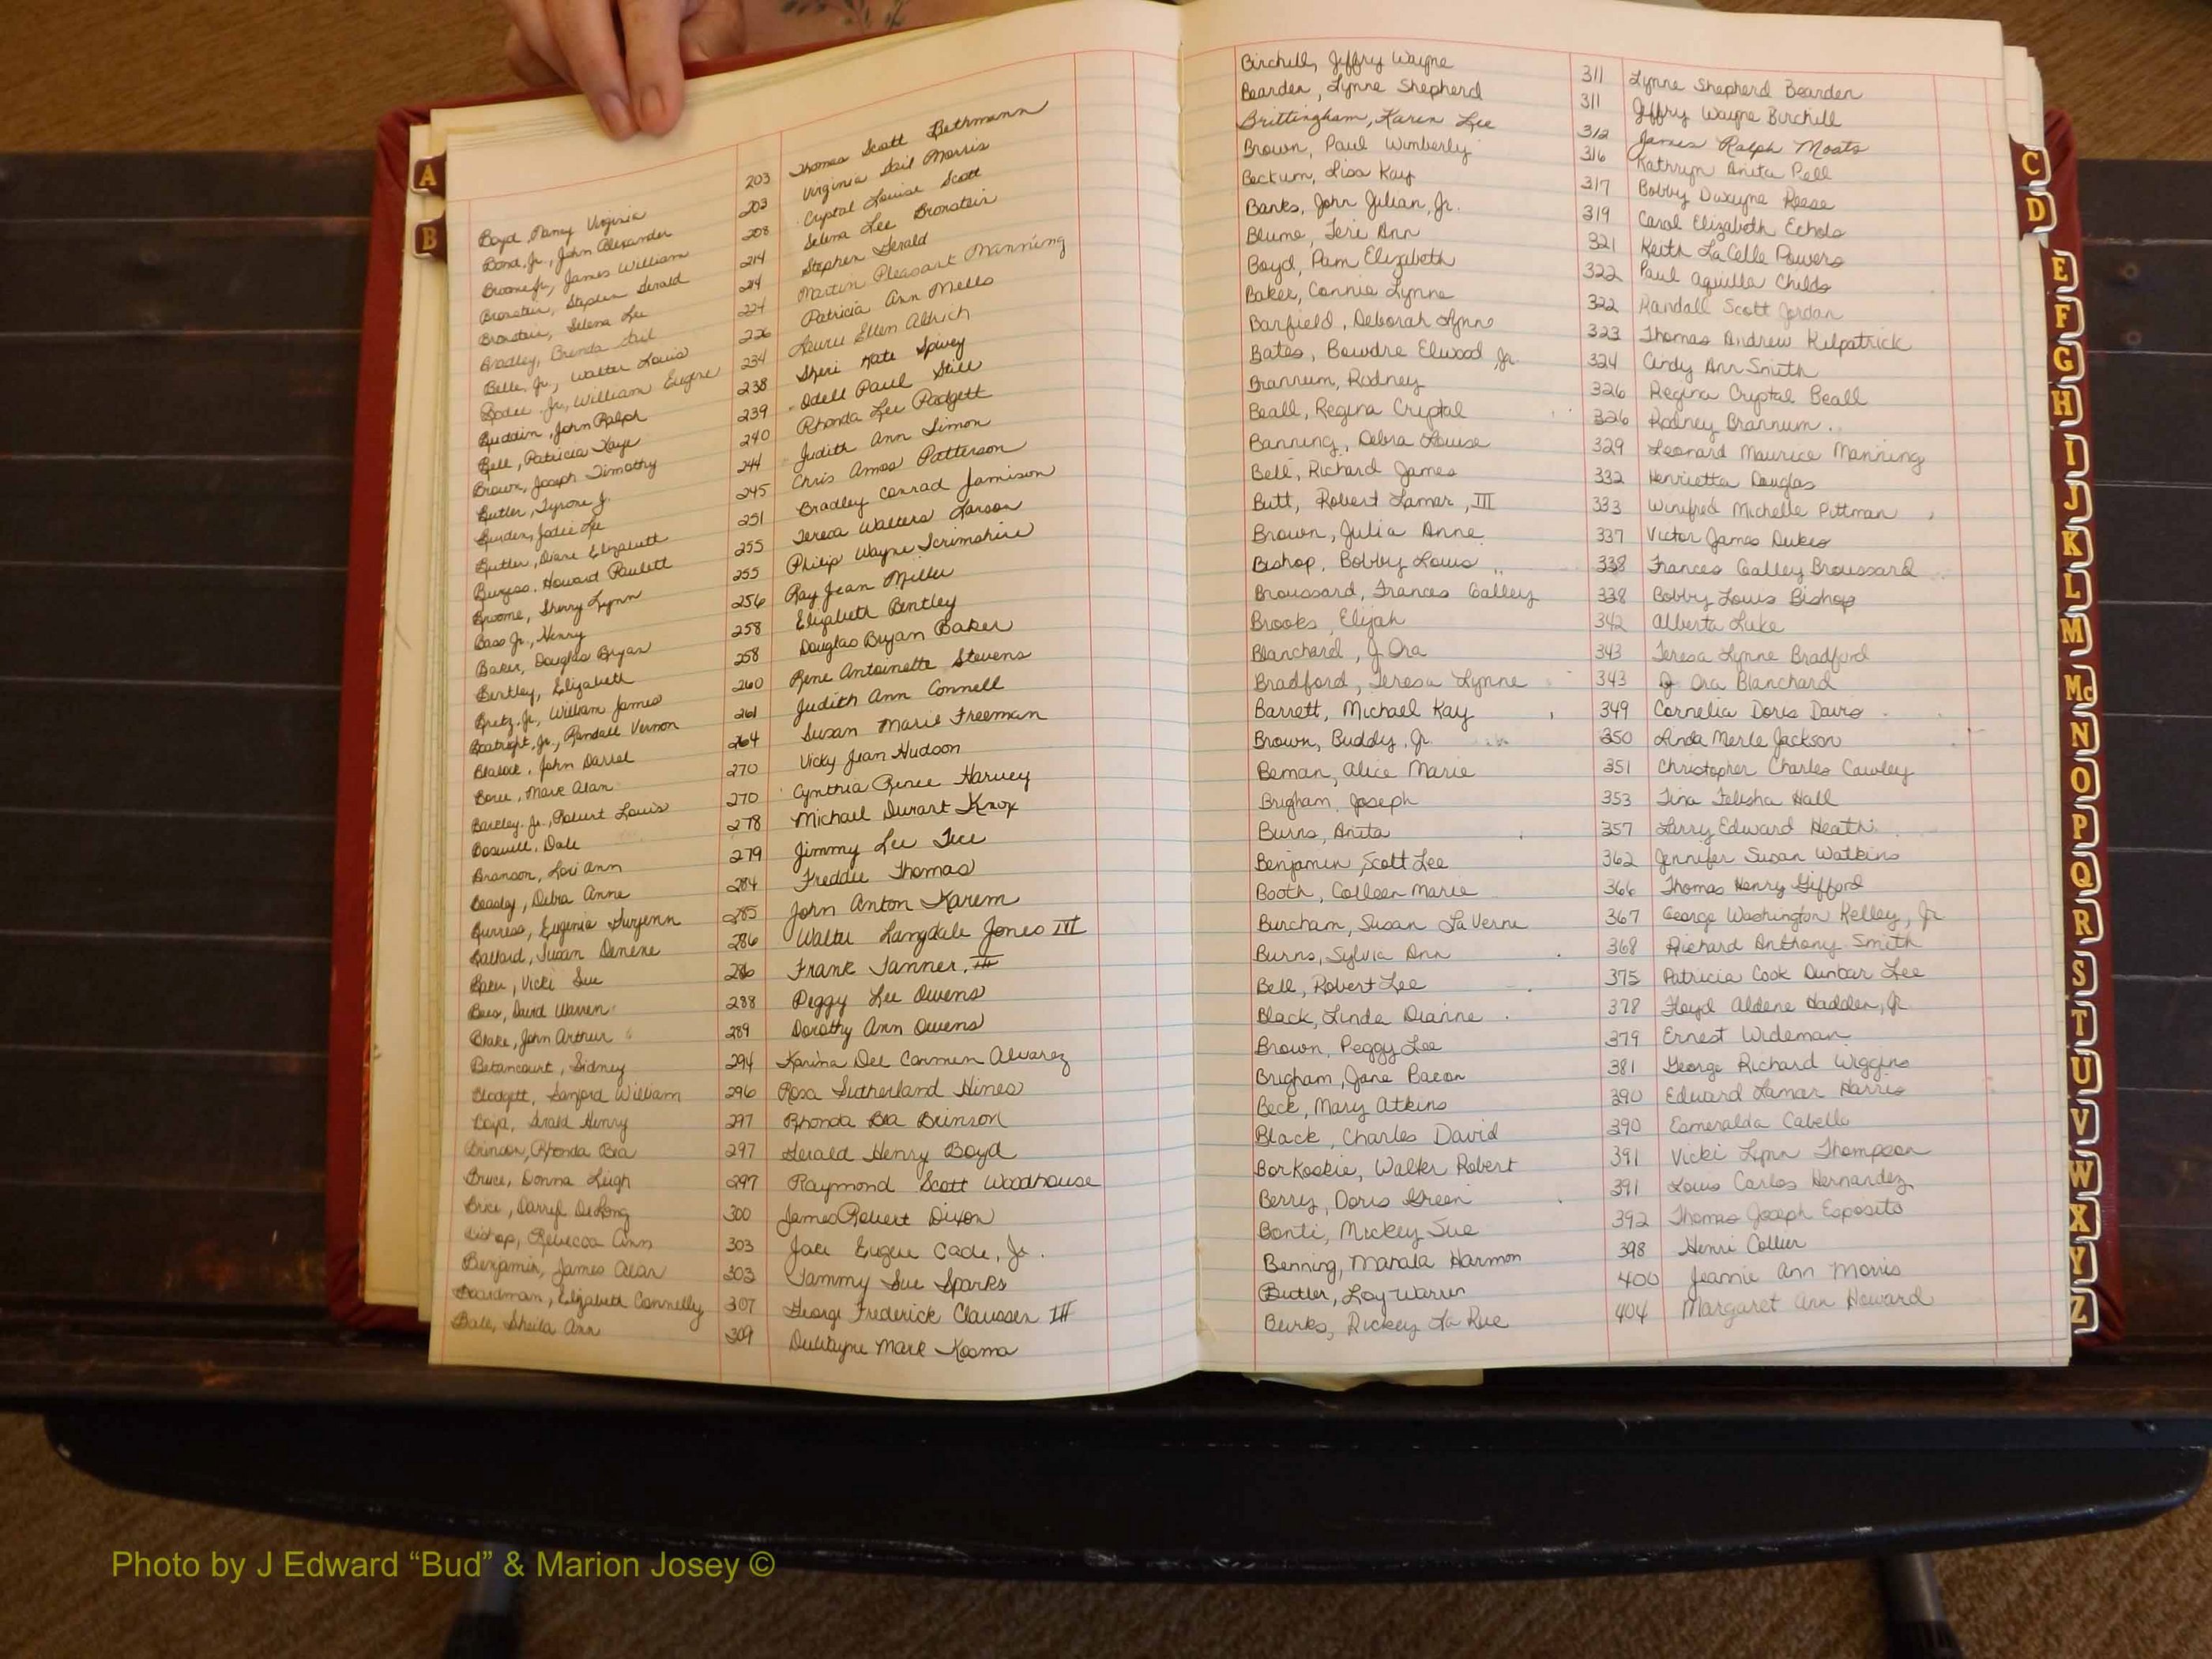 A
B
Boyd, Nancy Virginia 203 Thomas Scott Bethmann
Bond, Jr., John Alexander 203 Virginia Gail Morris
Broome Jr., James William 208 Crystal Louise Scott
Bronstein, Stephen Gerald 214 Selena Lee Bronstein
Bronstein, Selena Lee 214 Stephen Gerald
Bradley, Brenda Gail 224 Martin Pleasant Manning
Belle, Jr., Walter Louis 226 Patricia Ann Mells
Bodie Jr., William Eugene 234 Laurie Ellen Aldrich
Buddin, John Ralph 238 Sheri Kate Spivey
Bell, Patricia Kaye 239 Odell Paul Still
Brown, Joseph Timothy 240 Rhonda Lee Padgett
Butler, Tyrone J. 244 Judith Ann Simon
Burden, Jodie Lee 245 Chris Amos Patterson
Butler, Diane Elizabeth 251 Bradley Conrad Jamison
Burgess, Howard Paulett 255 Teresa Walters Larson
Broome, Sherry Lynn 255 Philip Wayne Scrimshire
Bass Jr., Henry 256 Ray Jean Miller
Baker, Douglas Bryan 258 Elizabeth Bentley
Bentley, Elizabeth 258 Douglas Bryan Baker
Bretz, Jr., William James 260 Rene Antoinette Stevens
Boatright, Jr., Randall Vernon 261 Judith Ann Connell
Blalock, John Darrel 264 Susan Marie Freeman
Mark Alan 270 Vicky Jean Hudson
Barkley, Jr., Robert Louis 270 Cynthia Renee Harvey
Boswell, Dale 278 Michael Durart Knox
Branson, Lori Ann 279 Jimmy Lee Tice
Beasley, Debra Anne 284 Freddie Thomas
Burress, Eugenia 285 John Anton Karem
Ballard, Susan Denene 286 Walter Langdale Jones III
Baker, Vicki Sue 286 Frank Tanner, III
Bees, David Warren 288 Peggy Lee Owens
Blake, John Arthur 289 Dorothy Ann Owens
Betancourt, Sidney 294 Karina Del Carmen Alvarez
Blodgett, Sanford William 296 Rosa Sutherland Hines
Boyd, Gerald Henry 297 Rhonda Bea Brinson
Brinson, Rhonda Bea 297 Gerald Henry Boyd
Bruce, Donna Leigh 297 Raymond Scott Woodhouse
Brice, Darryl DeLong 300 James Robert Dixon
Bishop, Rebecca Ann 303 Jace Eugene Cade, Jr.
Benjamin, James Alan 303 Tammy Sue Sparks
Boardman, Elizabeth Connelly 307 George Frederick Claussen III
Bale, Sheila Ann 309 Mark Kosma
Birchill, Jeffry Wayne 311 Lynne Shepherd Bearden
Bearden, Lynne Shepherd 311 Jeffry Wayne Birchill
Brittingham, Karen Lee 312 James Ralph Moats
Brown, Paul Wimberly 316 Kathryn Anita Pell
Beckum, Lisa Kay 317 Bobby Dwayne Reese
Banks, John Julian, Jr. 319 Carol Elizabeth Echols
Blume, Teri Ann 321 Keith LaCelle Powers
Boyd, Pam Elizabeth 322 Paul Aquilla Childs
Baker, Connie Lynne 322 Randall Scott Jordan
Barfield, Deborah Lynn 323 Thomas Andrew Kilpatrick
Bates, Bowdre Elwood, Jr. 324 Cindy Ann Smith
Brannum, Rodney 326 Regina Cryptal Beall
Beall, Regina Cryptal 326 Rodney Brannum
Banning, Debra Louise 329 Leonard Maurice Manning
Bell, Richard James 332 Henrietta Douglas
Butt, Robert Lamar, III 333 Winifred Michelle Pittman
Brown, Julia Anne 337 Victor James Dukes
Bishop, Bobby Louis 338 Frances Galley Broussard
Broussard, Frances Galley 338 Bobby Louis Bishop
Brooks, Elijah 342 Alberta Luke
Blanchard, J Ora 343 Teresa Lynne Bradford
Bradford, Teresa Lynne 343 J Ora Blanchard
Barrett, Michael Kay 349 Cornelia Doris Davis
Brown, Buddy, Jr. 350 Linda Merle Jackson
Beman, Alice Marie 351 Christopher Charles Cawley
Brigham, Joseph 353 Tina Felisha Hall
Burns, Anita 357 Larry Edward Heath
Benjamin, Scott Lee 362 Jennifer Susan Watkins
Booth, Colleen Marie 366 Thomas Henry Gifford
Burcham, Susan LaVerne 367 George Washington Kelley, Jr.
Burns, Sylvia Ann 368 Richard Anthony Smith
Bell, Robert Lee 375 Patricia Cook Dunbar Lee
Black, Linda Dianne 378 Floyd Aldene Hadden, Jr.
Brown, Peggy Lee 379 Ernest Wideman
Brigham, Jane Bacon 381 George Richard Wiggins
Beck, Mary Atkins 390 Edward Lamar Harris
Black, Charles David 390 Esmeralda Cabello
Borkoskie, Walter Robert 391 Vicki Lynn Thompson
Berry, Doris Green 391 Louis Carlos Hernandez
Bonti, Mickey Sue 392 Thomas Joseph Esposito
Benning, Marala Harmon 398 Henri Collier
Butler, Loy Warren 400 Jeannie Ann Morris
Burks, Rickey La Rue 404 Margaret Ann Howard
C
D
E
F
G
H
I
J
K
L
M
Mc
N
O
P
Q
R
S
T
U
V
W
X
Y
Z
Photo by J Edward “Bud” & Marion Josey ©